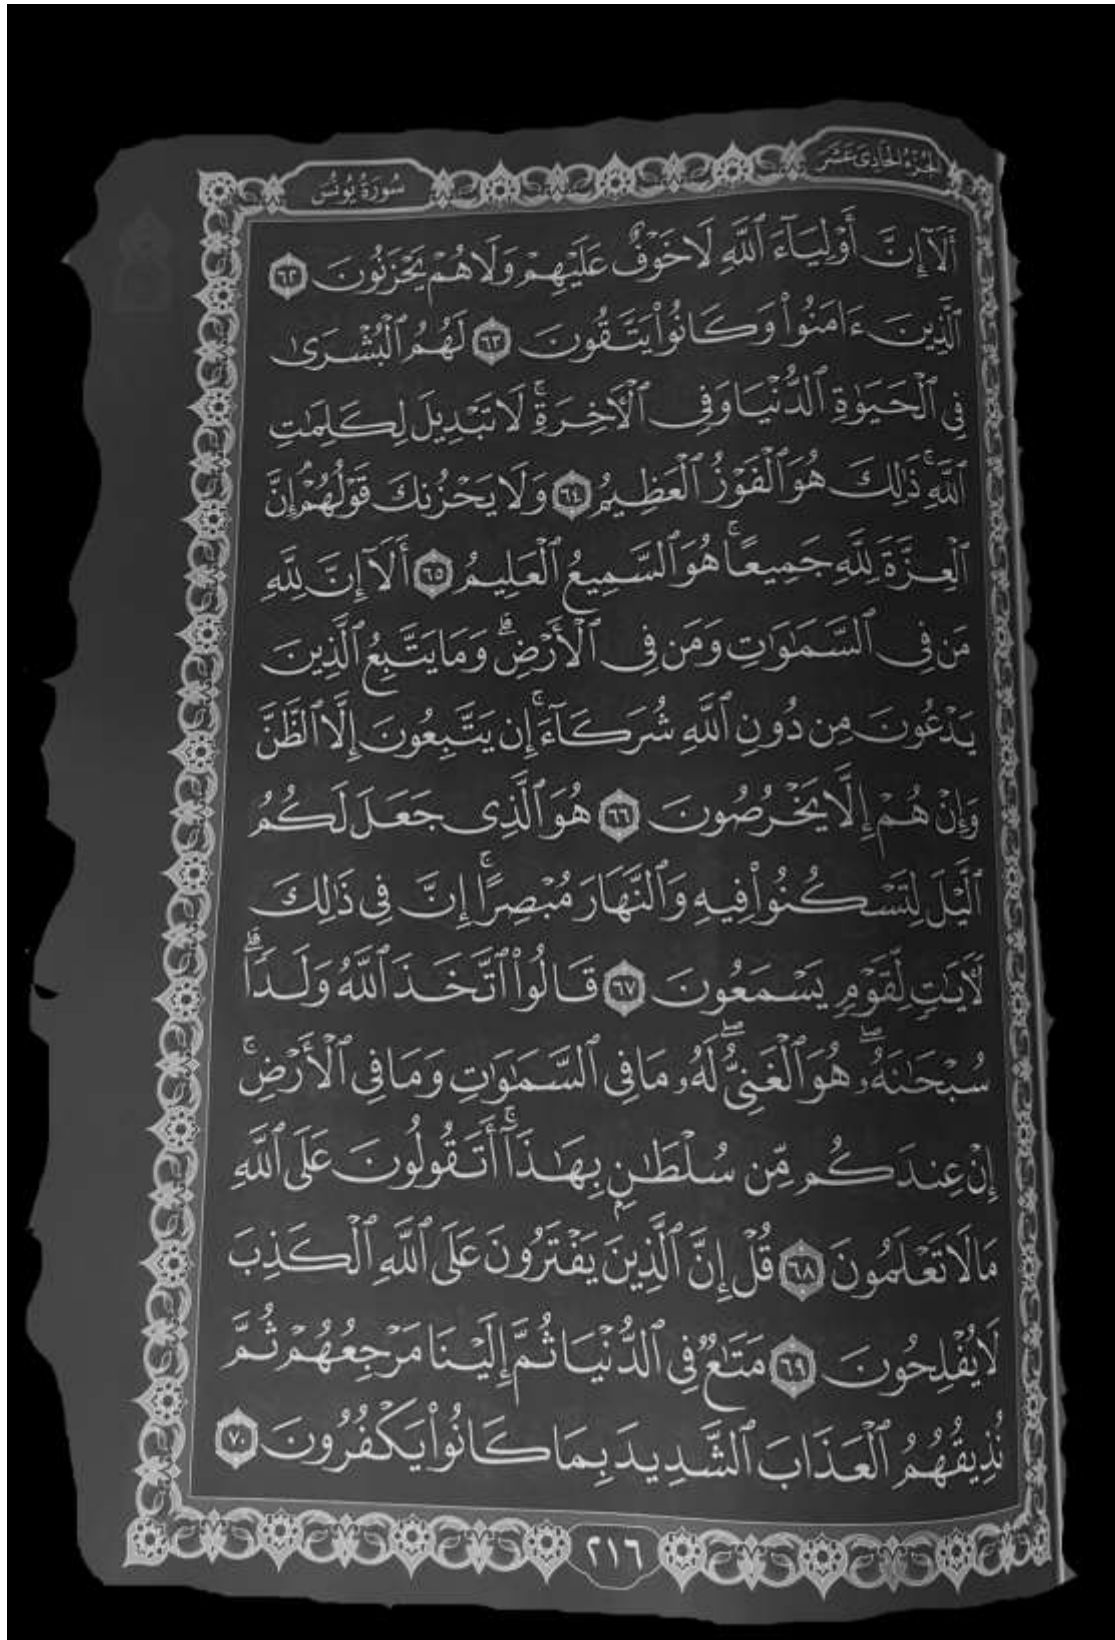 الجزء الحادي عشر
سورة يونس
أَلَآ إِنَّ أَوْلِيَآءَ ٱللَّهِ لَا خَوْفٌ عَلَيْهِمْ وَلَا هُمْ يَحْزَنُونَ ٦٢
ٱلَّذِينَ ءَامَنُوا۟ وَكَانُوا۟ يَتَّقُونَ ٦٣ لَهُمُ ٱلْبُشْرَىٰ
فِى ٱلْحَيَوٰةِ ٱلدُّنْيَا وَفِى ٱلْـَٔاخِرَةِ ۚ لَا تَبْدِيلَ لِكَلِمَـٰتِ
ٱللَّهِ ۚ ذَٰلِكَ هُوَ ٱلْفَوْزُ ٱلْعَظِيمُ ٦٤ وَلَا يَحْزُنكَ قَوْلُهُمْ ۘ إِنَّ
ٱلْعِزَّةَ لِلَّهِ جَمِيعًا ۚ هُوَ ٱلسَّمِيعُ ٱلْعَلِيمُ ٦٥ أَلَآ إِنَّ لِلَّهِ
مَن فِى ٱلسَّمَـٰوَٰتِ وَمَن فِى ٱلْأَرْضِ ۗ وَمَا يَتَّبِعُ ٱلَّذِينَ
يَدْعُونَ مِن دُونِ ٱللَّهِ شُرَكَآءَ ۚ إِن يَتَّبِعُونَ إِلَّا ٱلظَّنَّ
وَإِنْ هُمْ إِلَّا يَخْرُصُونَ ٦٦ هُوَ ٱلَّذِى جَعَلَ لَكُمُ
ٱلَّيْلَ لِتَسْكُنُوا۟ فِيهِ وَٱلنَّهَارَ مُبْصِرًا ۚ إِنَّ فِى ذَٰلِكَ
لَـَٔايَـٰتٍ لِّقَوْمٍ يَسْمَعُونَ ٦٧ قَالُوا۟ ٱتَّخَذَ ٱللَّهُ وَلَدًا ۗ
سُبْحَـٰنَهُۥ ۖ هُوَ ٱلْغَنِىُّ ۖ لَهُۥ مَا فِى ٱلسَّمَـٰوَٰتِ وَمَا فِى ٱلْأَرْضِ ۚ
إِنْ عِندَكُم مِّن سُلْطَـٰنٍۭ بِهَـٰذَآ ۚ أَتَقُولُونَ عَلَى ٱللَّهِ
مَا لَا تَعْلَمُونَ ٦٨ قُلْ إِنَّ ٱلَّذِينَ يَفْتَرُونَ عَلَى ٱللَّهِ ٱلْكَذِبَ
لَا يُفْلِحُونَ ٦٩ مَتَـٰعٌ فِى ٱلدُّنْيَا ثُمَّ إِلَيْنَا مَرْجِعُهُمْ ثُمَّ
نُذِيقُهُمُ ٱلْعَذَابَ ٱلشَّدِيدَ بِمَا كَانُوا۟ يَكْفُرُونَ ٧٠
٢١٦